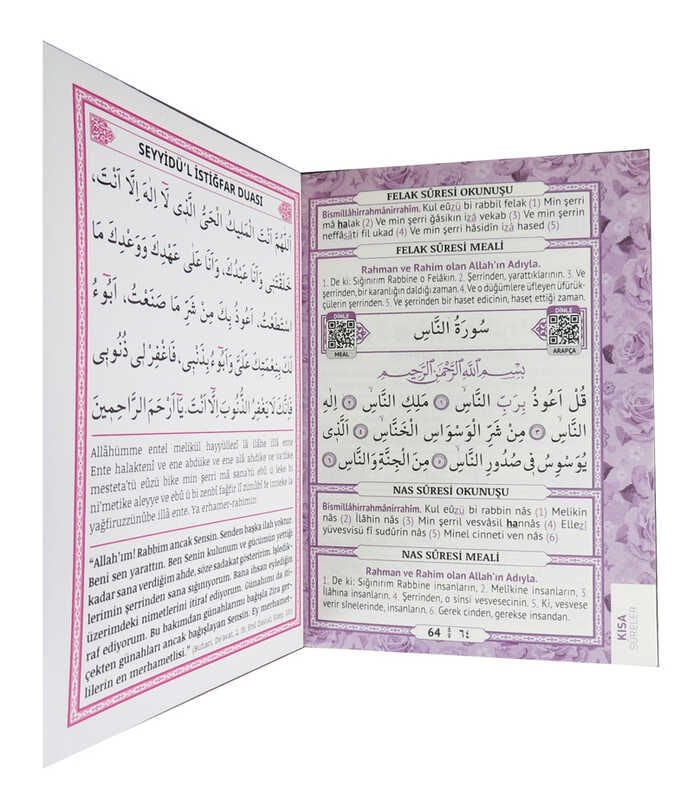 SEYYİDÜ'L İSTİĞFAR DUASI
اَللّٰهُمَّ اَنْتَ الْمَلِيكُ الْحَىُّ الَّذِى لَا اِلٰهَ اِلَّا اَنْتَ،
خَلَقْتَنِى وَاَنَا عَبْدُكَ، وَاَنَا عَلٰى عَهْدِكَ وَوَعْدِكَ مَا
اسْتَطَعْتُ، اَعُوذُ بِكَ مِنْ شَرِّ مَا صَنَعْتُ، اَبُوۤءُ
لَكَ بِنِعْمَتِكَ عَلَىَّ وَاَبُوۤءُ بِذَنْبِى، فَاغْفِرْ لِى ذُنُوبِى
فَاِنَّكَ لَا يَغْفِرُ الذُّنُوبَ اِلَّا اَنْتَ. يَۤا اَرْحَمَ الرَّاحِمِينَ
Allâhümme entel melikül hayyüllezî lâ ilâhe illâ ente
Ente halaktenî ve ene abdüke ve ene alâ ahdike ve va'dike
mesteta'tü eûzü bike min şerri mâ sana'tü ebû ü leke bi
ni'metike aleyye ve ebû ü bi zenbî fağfir lî zünûbî fe inneke la
yağfiruzzünûbe illâ ente. Ya erhamer-rahimin
“Allah'ım! Rabbim ancak Sensin. Senden başka ilah yoktur.
Beni sen yarattın. Ben Senin kulunum ve gücümün yettiği
kadar sana verdiğim ahde, söze sadakat gösteririm. İşledik-
lerimin şerrinden sana sığınıyorum. Bana ihsan eylediğin
üzerimdeki nimetlerini itiraf ediyorum. Günahımı da iti-
raf ediyorum. Bu bakımdan günahlarımı bağışla zira ger-
çekten günahları ancak bağışlayan Sensin. Ey merhamet-
lilerin en merhametlisi.”
FELAK SÛRESİ OKUNUŞU
Bismillâhirrahmânirrahîm. Kul eûzü bi rabbil felak (1) Min şerri
mâ halak (2) Ve min şerri ğâsikın izâ vekab (3) Ve min şerrin
neffâsâti fil ukad (4) Ve min şerri hâsidin izâ hased (5)
FELAK SÛRESİ MEALİ
Rahman ve Rahim olan Allah'ın Adıyla.
1. De ki: Sığınırım Rabbine o Felâkın. 2. Şerrinden, yarattıklarının. 3. Ve
şerrinden, bir karanlığın daldığı zaman. 4. Ve o düğümlere üfleyen üfürük-
çülerin şerrinden. 5. Ve şerrinden bir haset edicinin, haset ettiği zaman.
DİNLE
MEAL
سُورَةُ النَّاسِ
DİNLE
ARAPÇA
بِسْمِ اللّٰهِ الرَّحْمٰنِ الرَّحِيمِ
قُلْ اَعُوذُ بِرَبِّ النَّاسِۙ ١ مَلِكِ النَّاسِۙ ٢ اِلٰهِ
النَّاسِۙ ٣ مِنْ شَرِّ الْوَسْوَاسِ الْخَنَّاسِۙ ٤ اَلَّذِى
يُوَسْوِسُ فِى صُدُورِ النَّاسِۙ ٥ مِنَ الْجِنَّةِ وَالنَّاسِ ٦
NAS SÛRESİ OKUNUŞU
Bismillâhirrahmânirrahîm. Kul eûzü bi rabbin nâs (1) Melikin
nâs (2) İlâhin nâs (3) Min şerril vesvâsil hannâs (4) Ellezî
yüvesvisü fî sudûrin nâs (5) Minel cinneti ven nâs (6)
NAS SÛRESİ MEALİ
Rahman ve Rahim olan Allah'ın Adıyla.
1. De ki: Sığınırım Rabbine insanların, 2. Melikine insanların, 3.
İlâhına insanların. 4. Şerrinden, o sinsi vesvesecinin. 5. Ki, vesvese
verir sînelerinde, insanların. 6. Gerek cinden, gerekse insandan.
64 ٦٤
KISA
SÛRELER